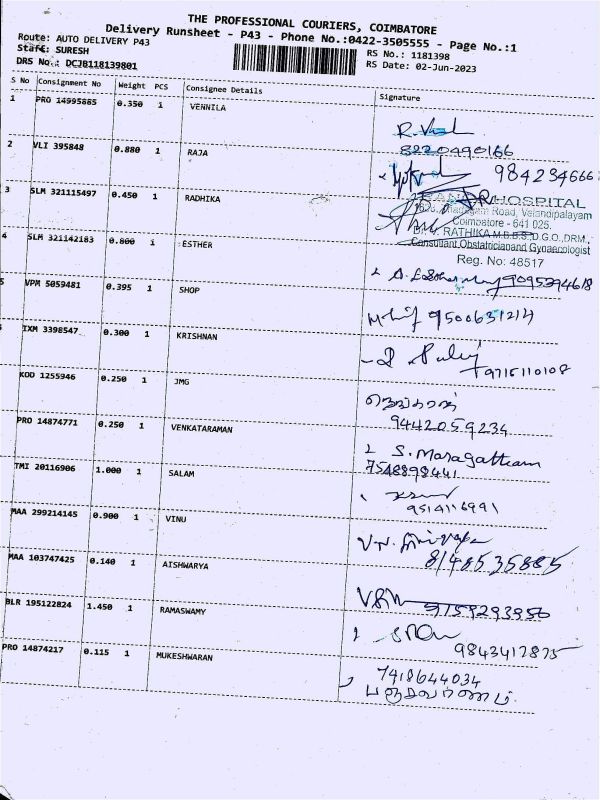 THE PROFESSIONAL COURIERS, COIMBATORE
Delivery Runsheet - P43 - Phone No.:0422-3505555 - Page No.:1
Route: AUTO DELIVERY P43
RS No.: 1181398
Staff: SURESH
RS Date: 02-Jun-2023
DRS No.: DCJB118139801
S No Consignment No Weight PCS Consignee Details Signature
1 PRO 14995885 0.350 1 VENNILA
8220490166
2 VLI 395848 0.880 1 RAJA
984234666
3 SLM 321115497 0.450 1 RADHIKA
HOSPITAL
Road, Velandipalayam
Coimbatore - 641 025.
Dr. V. RATHIKA M.B.B.S.,D.G.O.,DRM.,
Consultant Obstetrician and Gynaecologist
Reg. No: 48517
4 SLM 321142183 0.800 1 ESTHER
9095394618
5 VPM 5059481 0.395 1 SHOP
9500631214
IXM 3398547 0.300 1 KRISHNAN
9715110108
KOD 1255946 0.250 1 JMG
9442059234
PRO 14874771 0.250 1 VENKATARAMAN
S. Maragatham
7548898441
TMI 20116906 1.000 1 SALAM
9514116991
MAA 299214145 0.900 1 VINU
8148535885
MAA 103747425 0.140 1 AISHWARYA
9159293950
BLR 195122824 1.450 1 RAMASWAMY
9843417875
PRO 14874217 0.115 1 MUKESHWARAN
7418644034